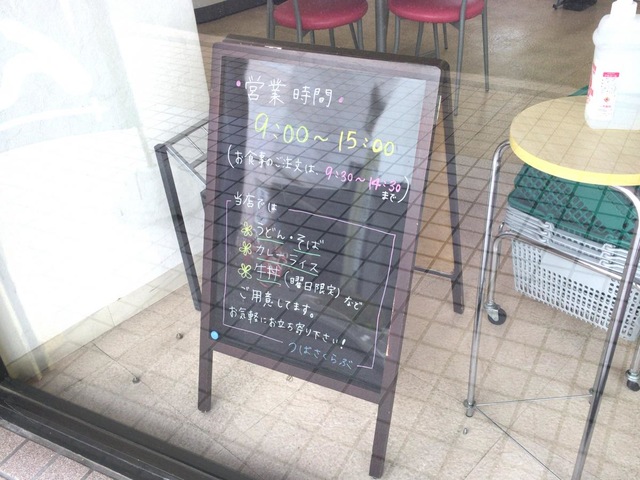 営業時間
9:00～15:00
(お食事のご注文は、9:30～14:30まで)
当店では
うどん・そば
カレーライス
牛丼(曜日限定)など
ご用意してます。
お気軽にお立ち寄り下さい!
つばさくらぶ